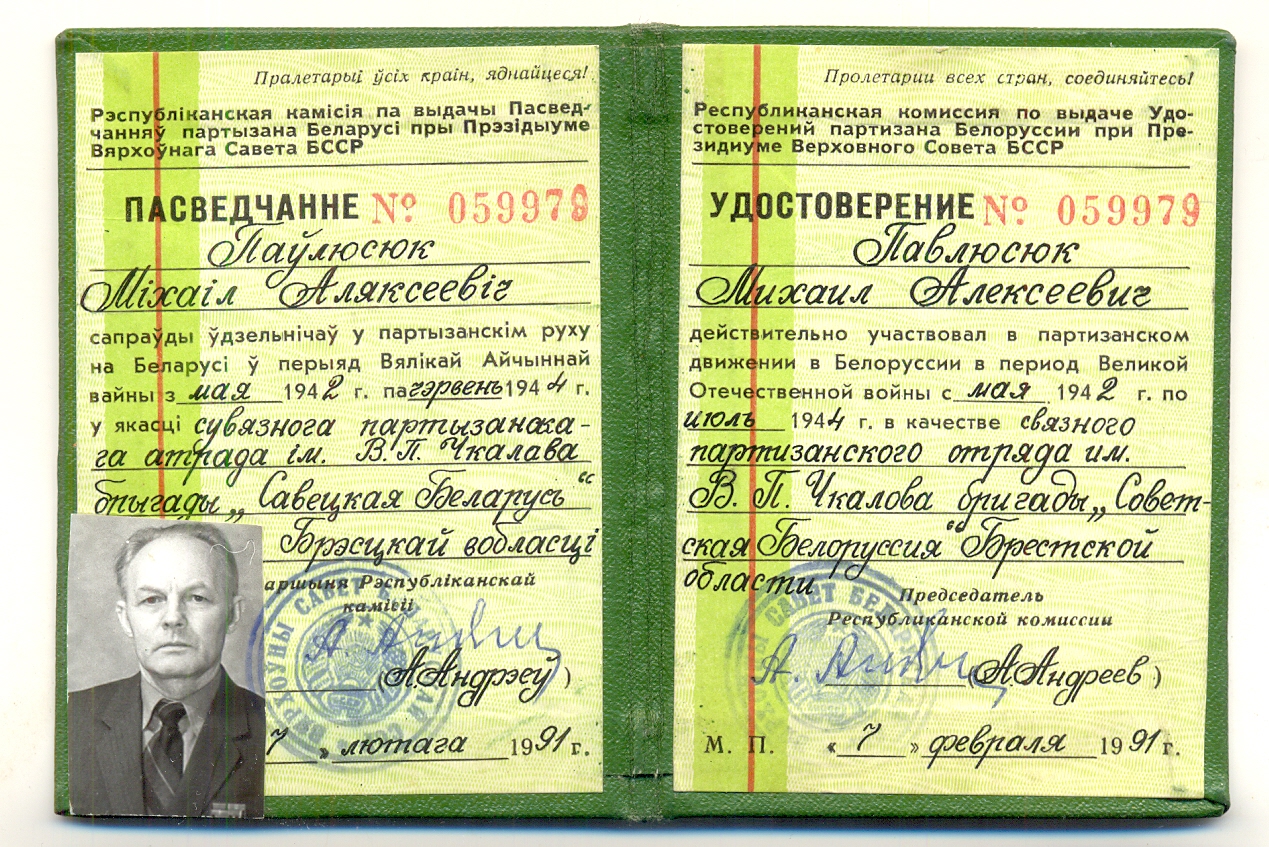 Пралетарыі ўсіх краін, яднайцеся!
Рэспубліканская камісія па выдачы Пасвед-
чанняў партызана Беларусі пры Прэзідыуме
Вярхоўнага Савета БССР
ПАСВЕДЧАННЕ № 059979
Паўлюсюк
Міхаіл Аляксеевіч
сапраўды ўдзельнічаў у партызанскім руху
на Беларусі ў перыяд Вялікай Айчыннай
вайны з мая 1942 г. па чэрвень 1944 г.
у якасці сувязнога партызанска-
га атрада ім. В.П. Чкалава
брыгады „Савецкая Беларусь“
Брэсцкай вобласці
аршыня Рэспубліканскай
камісіі
(А.Андрэеў)
7 » лютага 1991 г.
Пролетарии всех стран, соединяйтесь!
Республиканская комиссия по выдаче Удо-
стоверений партизана Белоруссии при Пре-
зидиуме Верховного Совета БССР
УДОСТОВЕРЕНИЕ № 059979
Павлюсюк
Михаил Алексеевич
действительно участвовал в партизанском
движении в Белоруссии в период Великой
Отечественной войны с мая 1942 г. по
июль 1944 г. в качестве связного
партизанского отряда им.
В. П. Чкалова бригады „Совет-
ская Белоруссия“ Брестской
области
Председатель
Республиканской комиссии
(А.Андреев)
М. П. « 7 » февраля 1991 г.